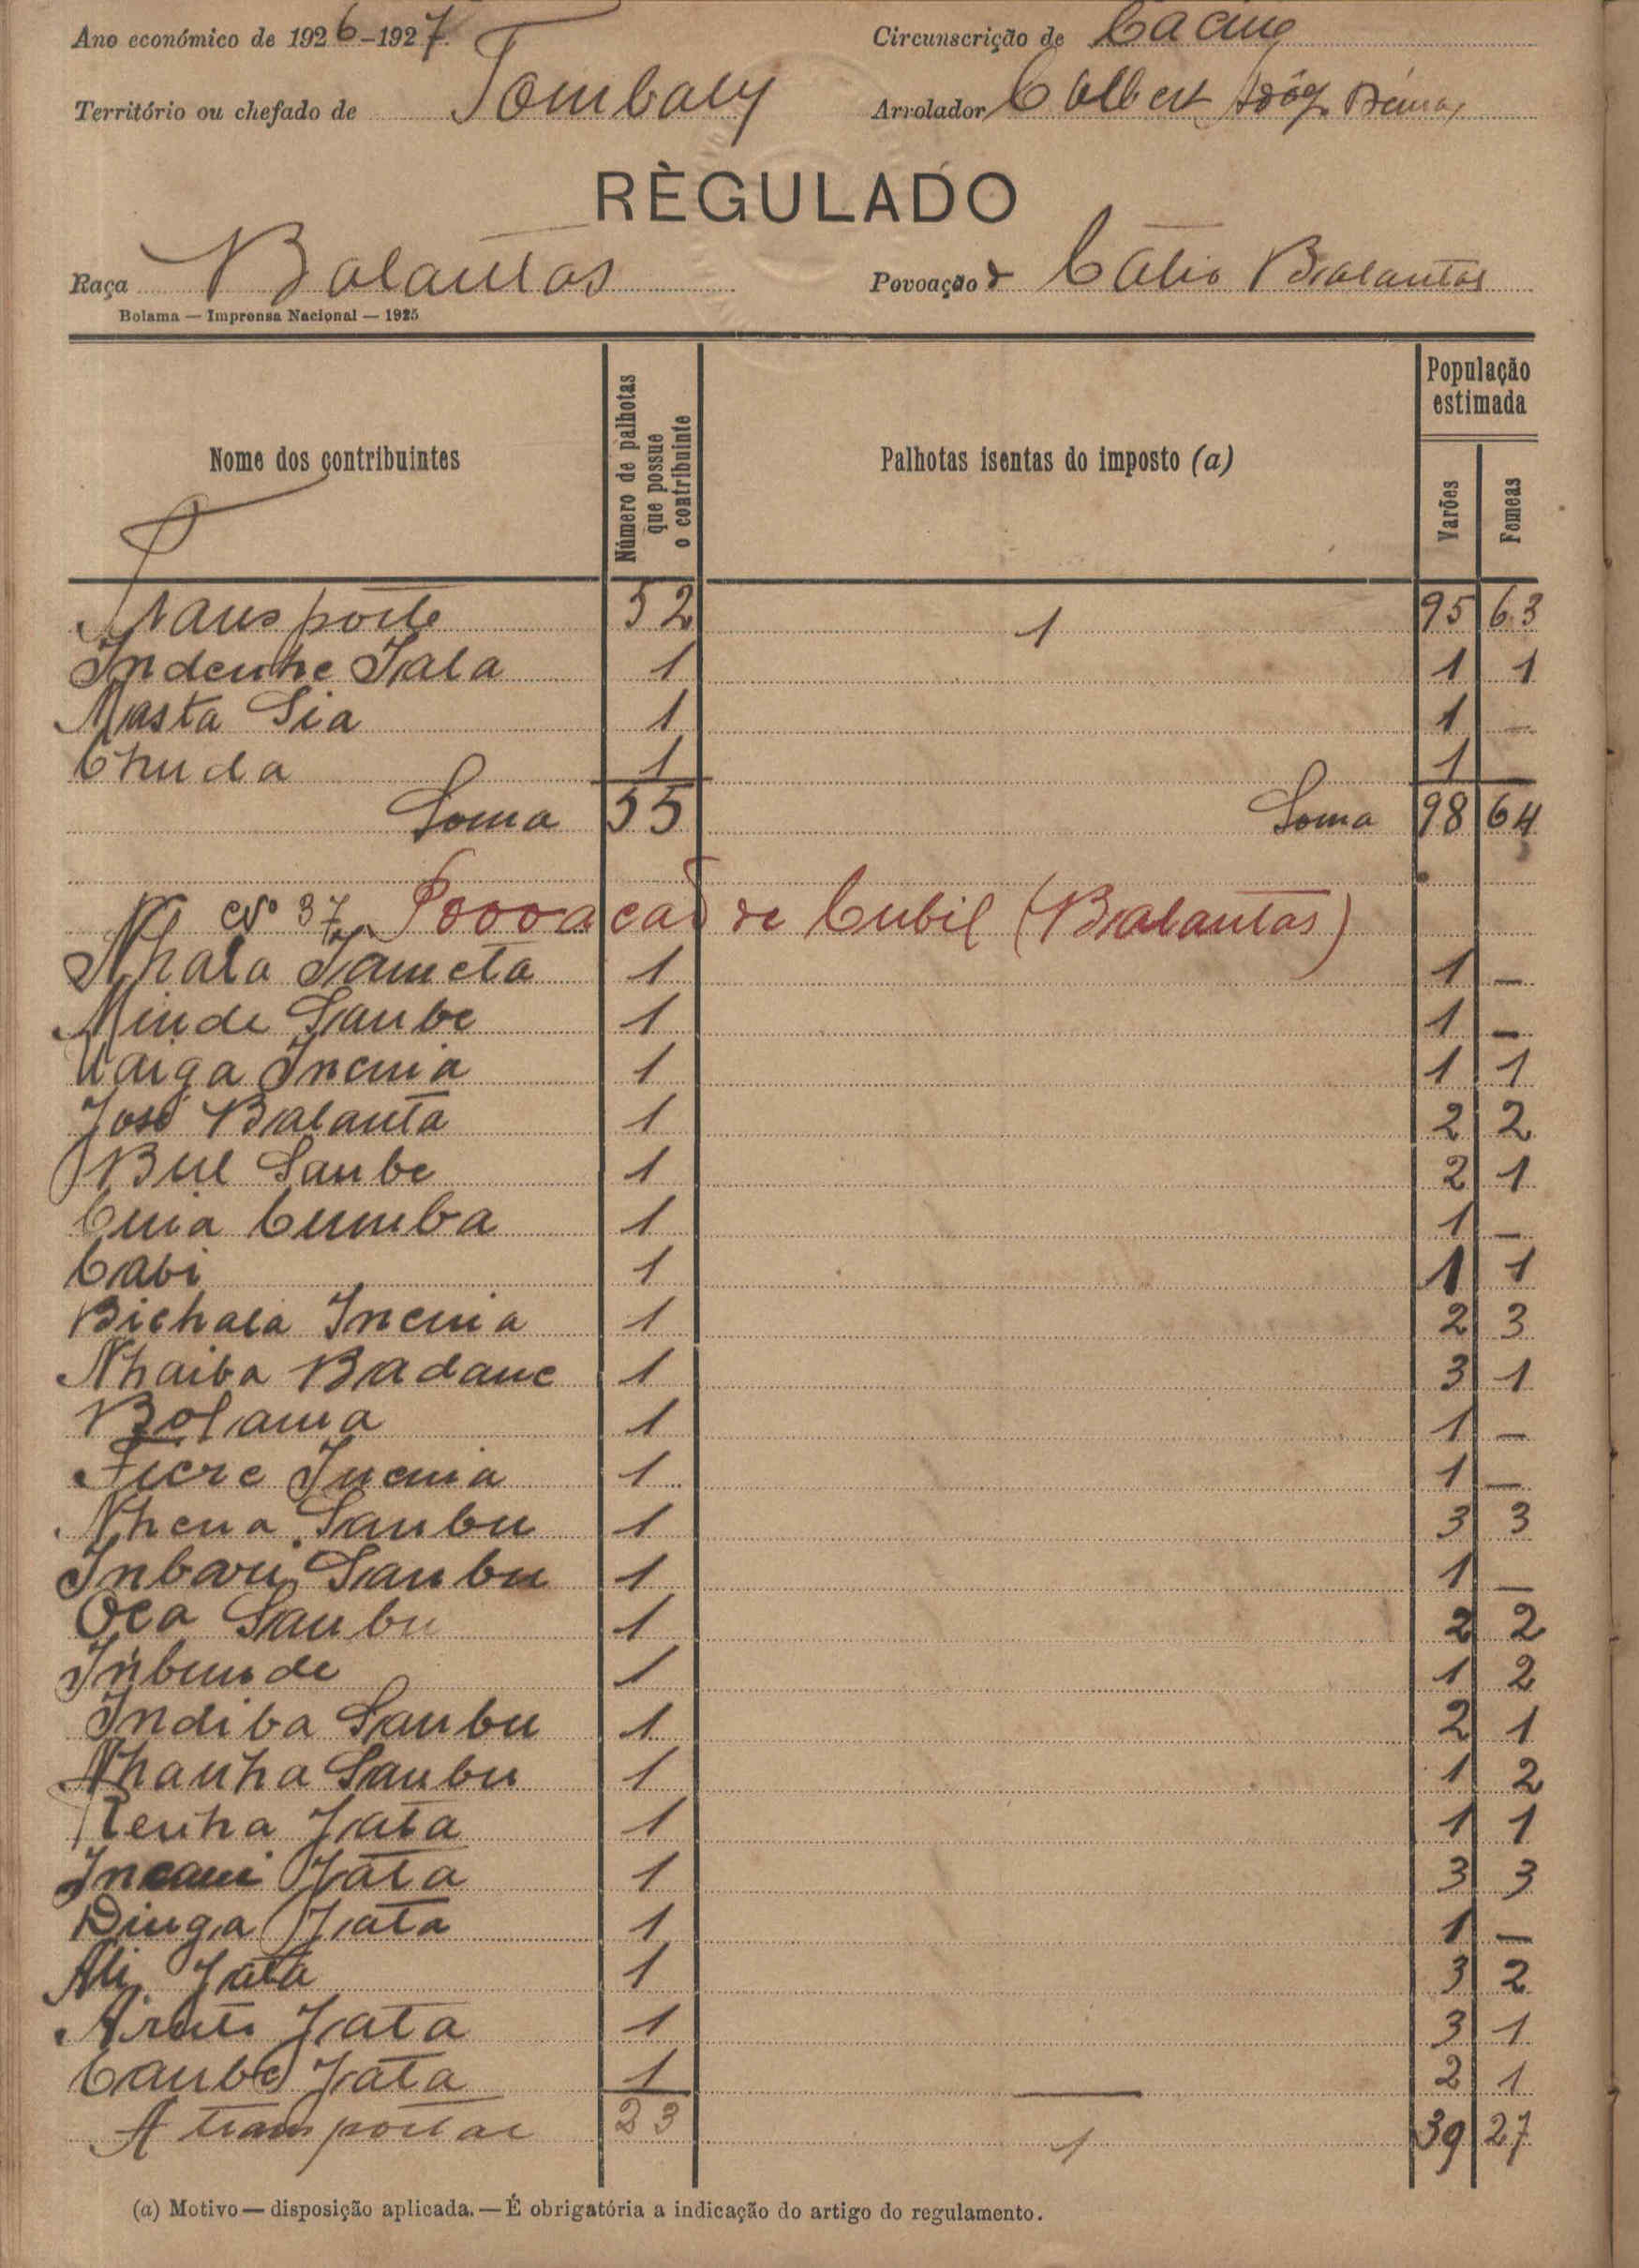 Ano económico de 1926-1927. Circunscrição de Cacine
Território ou chefado de Tombaly Arrolador Calbert
RÈGULADO
Raça Balantas Povoação de Catio Balantas
Bolama — Imprensa Nacional — 1925
Nome dos contribuintes
Número de palhotas que possue o contribuinte
Palhotas isentas do imposto (a)
População estimada
Varões Femeas
Transporte 52 1 95 63
Indenhe Tala 1 1 1
Nasta Sia 1 1 —
Chuda 1 1 —
Soma 55 Soma 98 64
Nº 37 Povoacão de Cubil (Balantas)
Nhala Tameta 1 1 —
Minde Sanbe 1 1 —
Uaiga Incuia 1 1 1
José Balanta 1 2 2
Bul Sanbe 1 2 1
Cuia Cumba 1 1 —
Cabi 1 1 1
Bichala Incuia 1 2 3
Nhaiba Badane 1 3 1
Bolama 1 1 —
Ficre Incuia 1 1 —
Nhena Sanbu 1 3 3
Inbari Sanbu 1 1 —
Oca Sanbu 1 2 2
Inbunde 1 1 2
Indiba Sanbu 1 2 1
Nhanha Sanbu 1 1 2
Tenha Jata 1 1 1
Incaui Jata 1 3 3
Dinga Jata 1 1 —
Ali Jata 1 3 2
Jata 1 3 1
Canbe Jata 1 2 1
A transportar 23 1 39 27
(a) Motivo — disposição aplicada. — É obrigatória a indicação do artigo do regulamento.